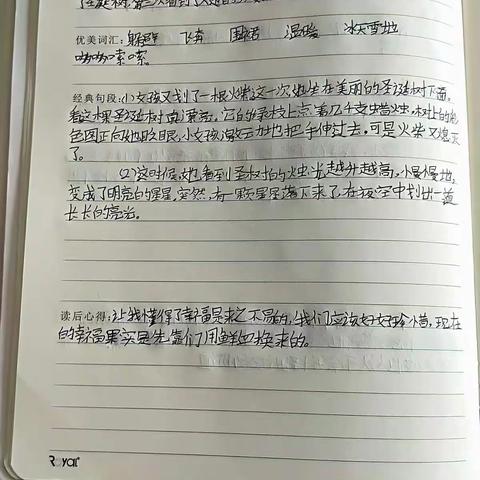 了圣诞树,第三次看到了
优美词汇: 躲避 飞奔 围裙 温暖 冰天雪地
哆哆嗦嗦
经典句段: 小女孩又划了一根火柴这一次她坐在美丽的圣诞树下面。
看这棵圣诞树 它的 枝上点着几千支蜡烛,树上的
色图正向她眨眼,小女孩激动地把手伸过去。可是火柴又熄灭
了。
(2)这时候,她看到圣 树的烛光越升越高,慢慢地,
变成了明亮的星星,突然,有一颗星星落下来了,在夜空中划出一道
长长的亮光。
读后心得: 让我懂得了幸福是来之不易的,我们应该好好珍惜,现在
的幸福果实是先辈们用鲜血换来的。
Royal